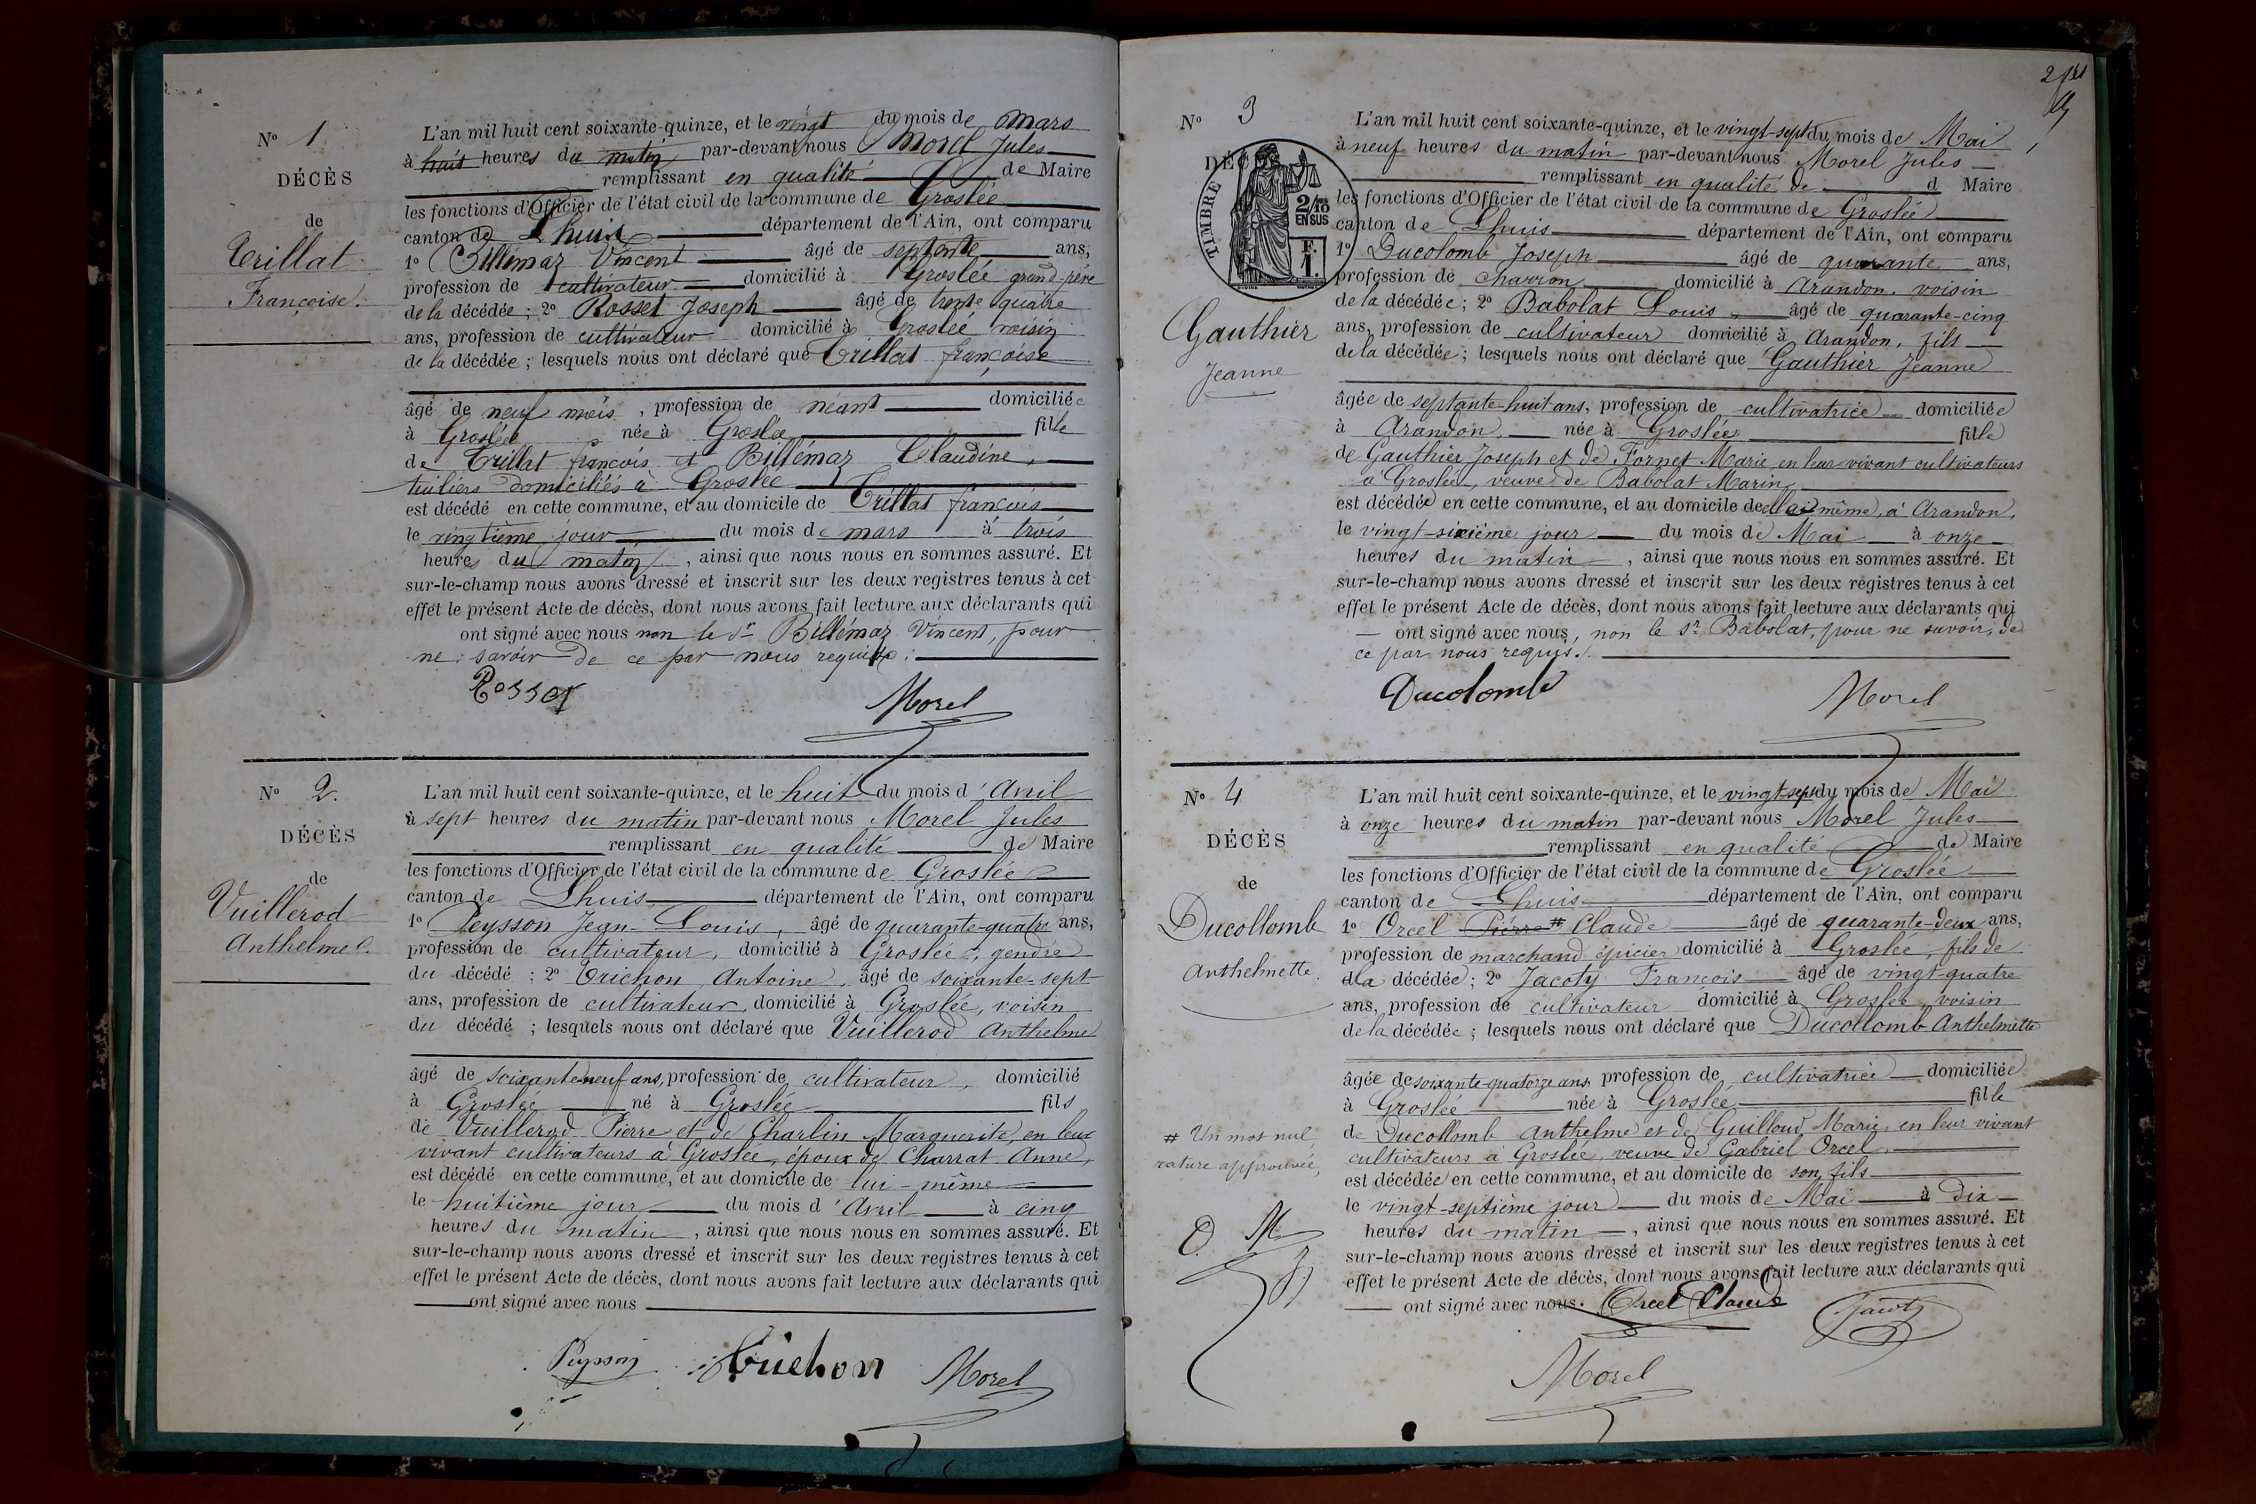 N° 1
DÉCÈS
de
Trillat
Françoise.
L'an mil huit cent soixante-quinze, et le vingt du mois de Mars
à huit heures du matin par-devant nous Morel Jules
remplissant en qualité de Maire
les fonctions d'Officier de l'état civil de la commune de Groslée
canton de Lhuis département de l'Ain, ont comparu
1° Billémaz Vincent âgé de septante ans,
profession de cultivateur domicilié à Groslée grand-père
de la décédée ; 2° Rosset Joseph âgé de trente quatre
ans, profession de cultivateur domicilié à Groslée voisin
de la décédée ; lesquels nous ont déclaré que Trillat françoise
âgé de neuf mois, profession de néant domiciliée
à Groslée née à Groslée fille
de Trillat françois et Billémaz Claudine,
tuiliers domiciliés à Groslée
est décédé en cette commune, et au domicile de Trillat françois
le vingtième jour du mois de mars à trois
heures du matin, ainsi que nous nous en sommes assuré. Et
sur-le-champ nous avons dressé et inscrit sur les deux registres tenus à cet
effet le présent Acte de décès, dont nous avons fait lecture aux déclarants qui
ont signé avec nous non le sr Billémaz Vincent, pour
ne savoir de ce par nous requis.
Rosset
Morel
N° 2.
DÉCÈS
de
Vuillerod
Anthelme.
L'an mil huit cent soixante-quinze, et le huit du mois d'Avril
à sept heures du matin par-devant nous Morel Jules
remplissant en qualité de Maire
les fonctions d'Officier de l'état civil de la commune de Groslée
canton de Lhuis département de l'Ain, ont comparu
1° Peysson Jean-Louis, âgé de quarante-quatre ans,
profession de cultivateur, domicilié à Groslée, gendre
du décédé ; 2° Trichon Antoine, âgé de soixante-sept
ans, profession de cultivateur, domicilié à Groslée, voisin
du décédé ; lesquels nous ont déclaré que Vuillerod Anthelme
âgé de soixante neuf ans, profession de cultivateur, domicilié
à Groslée né à Groslée fils
de Vuillerod Pierre et de Charlin Marguerite, en leur
vivant cultivateurs à Groslée, époux de Charrat Anne,
est décédé en cette commune, et au domicile de lui-même
le huitième jour du mois d'Avril à cinq
heures du matin, ainsi que nous nous en sommes assuré. Et
sur-le-champ nous avons dressé et inscrit sur les deux registres tenus à cet
effet le présent Acte de décès, dont nous avons fait lecture aux déclarants qui
ont signé avec nous
Peysson
Trichon
Morel
N° 3
DÉC
TIMBRE
2/10 EN SUS
F. 1.
Gauthier
Jeanne
L'an mil huit cent soixante-quinze, et le vingt-sept du mois de Mai
à neuf heures du matin par-devant nous Morel Jules
remplissant en qualité de d Maire
les fonctions d'Officier de l'état civil de la commune de Groslée
canton de Lhuis département de l'Ain, ont comparu
1° Ducolomb Joseph âgé de quarante ans,
profession de charron domicilié à Arandon, voisin
de la décédée ; 2° Babolat Louis, âgé de quarante-cinq
ans, profession de cultivateur domicilié à Arandon, fils
de la décédée ; lesquels nous ont déclaré que Gauthier Jeanne
âgée de septante-huit ans, profession de cultivatrice domiciliée
à Arandon, née à Groslée fille
de Gauthier Joseph et de Fornet Marie en leur vivant cultivateurs
à Groslée, veuve de Babolat Marin,
est décédée en cette commune, et au domicile de elle même, à Arandon,
le vingt-sixième jour du mois de Mai à onze
heures du matin, ainsi que nous nous en sommes assuré. Et
sur-le-champ nous avons dressé et inscrit sur les deux registres tenus à cet
effet le présent Acte de décès, dont nous avons fait lecture aux déclarants qui
ont signé avec nous, non le Sr Babolat, pour ne savoir, de
ce par nous requis.
Ducolomb
Morel
N° 4
DÉCÈS
de
Ducollomb
Anthelmette.
L'an mil huit cent soixante-quinze, et le vingt-sept du mois de Mai
à onze heures du matin par-devant nous Morel Jules
remplissant en qualité de Maire
les fonctions d'Officier de l'état civil de la commune de Groslée
canton de Lhuis département de l'Ain, ont comparu
1° Orcel Pierre # Claude âgé de quarante-deux ans,
profession de marchand épicier domicilié à Groslée, fils de
dla décédée ; 2° Jacoty François âgé de vingt-quatre
ans, profession de cultivateur domicilié à Groslée, voisin
de la décédée ; lesquels nous ont déclaré que Ducollomb Anthelmette
âgée de soixante-quatorze ans profession de cultivatrice domiciliée
à Groslée née à Groslée fille
de Ducollomb Anthelme et de Guilloud Marie, en leur vivant
cultivateurs à Groslée, veuve de Gabriel Orcel,
est décédée en cette commune, et au domicile de son fils
le vingt-septième jour du mois de Mai à dix
heures du matin, ainsi que nous nous en sommes assuré. Et
sur-le-champ nous avons dressé et inscrit sur les deux registres tenus à cet
effet le présent Acte de décès, dont nous avons fait lecture aux déclarants qui
ont signé avec nous. Orcel Claude
Jacoty
Morel
# Un mot nul,
rature approuvée,
O. M
J